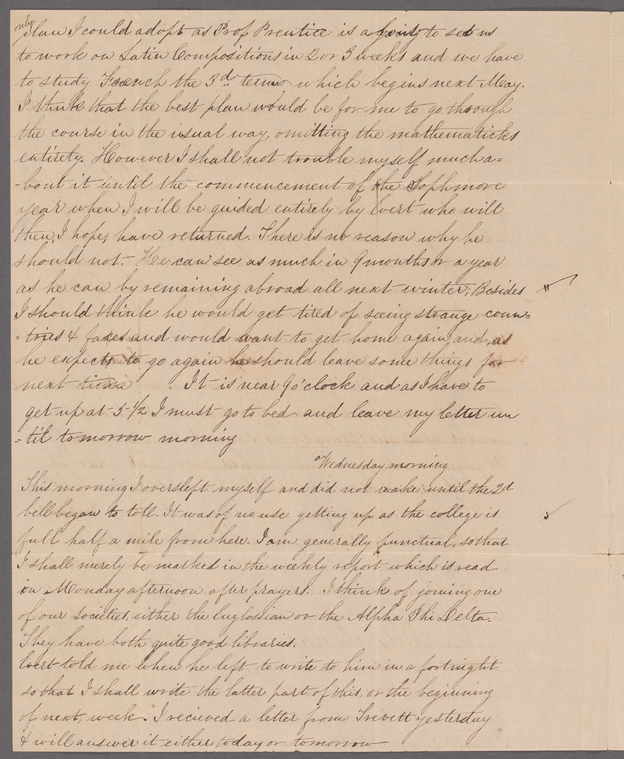 only
plan I could adopt as Prof Prentice is a going to set us
to work on Latin Compositions in 2 or 3 weeks and we have
to study French the 3d term which begins next May.
I think that the best plan would be for me to go through
the course in the usual way, omitting the mathematicks
entirely. However I shall not trouble myself much a=
=bout it until the commencement of the Sophmore
year when I will be guided entirely by Evert who will
then, I hope, have returned. There is no reason why he
should not. He can see as much in 9 months or a year
as he can by remaining abroad all next winter, Besides
I should think he would get tired of seeing strange coun=
=tries & faces and would want to get home again, and, as
he expects to go again he should leave some things for
next time. It is near 9 o'clock and as I have to
get up at 5 1/2 I must go to bed and leave my letter un
=til tomorrow morning
Wednesday morning
This morning I overslept myself and did not wake until the 2d
bell began to toll. It was of no use getting up as the college is
full half a mile from here. I am generally punctual, so that
I shall merely be marked in the weekly report which is read
on Monday afternoon after prayers. I think of joining one
of our societies, either the Euglossian or the Alpha Phi Delta.
They have both quite good libraries.
Evert told me when he left to write to him in a fortnight
so that I shall write the latter part of this, or the beginning
of next, week. I recieved a letter from Trivett yesterday
& will answer it either today or tomorrow